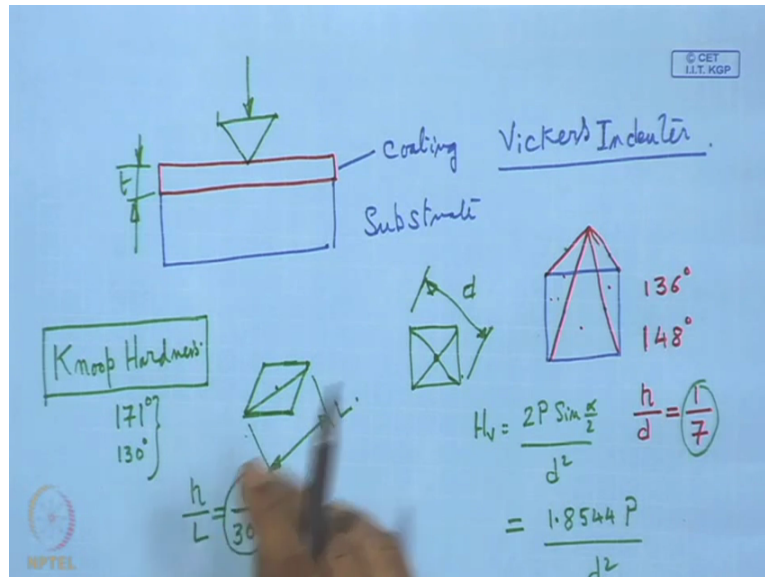 © CET
I.I.T. KGP
Coating
Vickers Indenter.
t
Substrate
d
136°
148°
Knoop Hardness.
171°
130°
L.
Hv = 2P Sin α/2 / d²
h/d = 1/7
h/L = 30
= 1.8544 P / d²
NPTEL